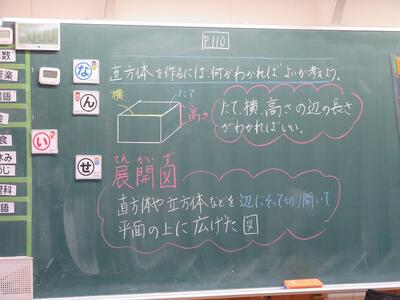 P.110
直方体を作るには、何がわかればよいか考えよう。
な
ん
い
せ
横
たて
高さ
たて、横、高さの辺の長さ
がわかればいい。
てんかいず
展開図
直方体や立方体などを辺にそって切り開いて
平面の上に広げた図
数
音楽
国語
会
食
休み
理科
語